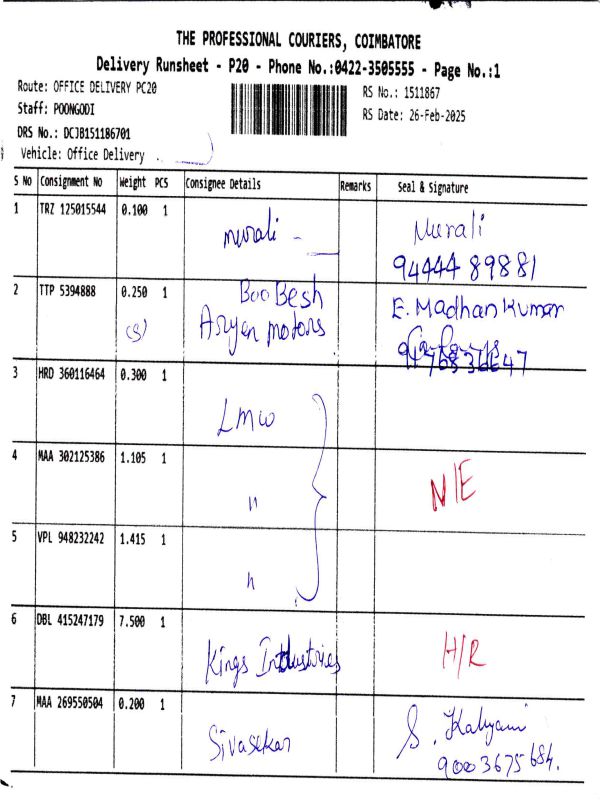 THE PROFESSIONAL COURIERS, COIMBATORE
Delivery Runsheet - P20 - Phone No.:0422-3505555 - Page No.:1
Route: OFFICE DELIVERY PC20
RS No.: 1511867
Staff: POONGODI
RS Date: 26-Feb-2025
DRS No.: DCJB151186701
Vehicle: Office Delivery
S No Consignment No Weight PCS Consignee Details Remarks Seal & Signature
1 TRZ 125015544 0.100 1 murali - Murali
94444 89881
2 TTP 5394888 0.250 1 Boo Besh E. Madhan Kumar
(S) Aryen motors
3 HRD 360116464 0.300 1
LMW
4 MAA 302125386 1.105 1
N/E
"
5 VPL 948232242 1.415 1
"
6 DBL 415247179 7.500 1
Kings Industries H/R
7 MAA 269550504 0.200 1
Sivasekar S. Kalyani
9003675684.